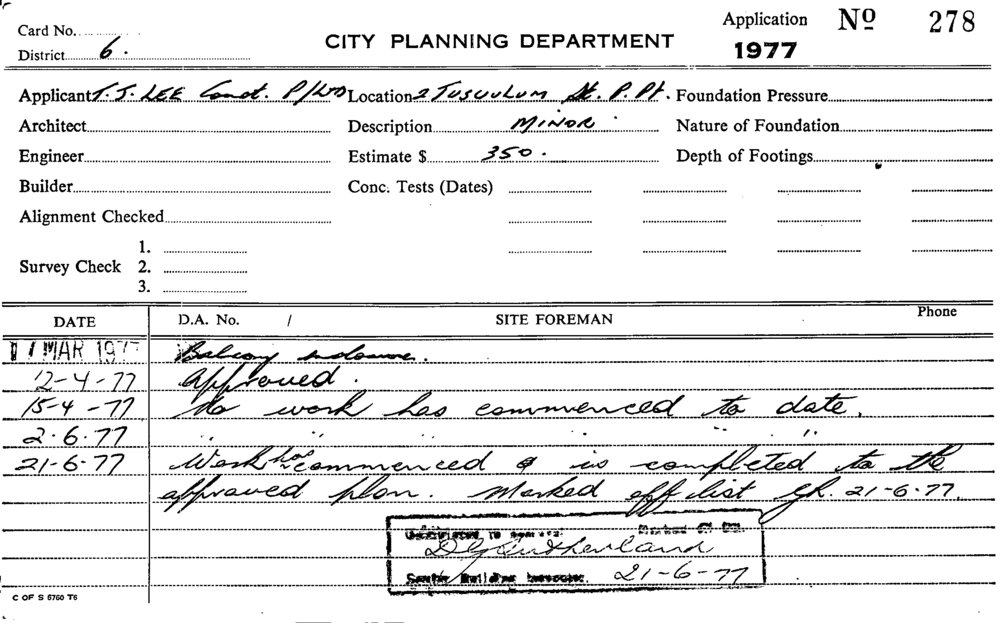 Card No.
Application No 278
District 6.
CITY PLANNING DEPARTMENT
1977
Applicant T. J. LEE Const. P/LTD Location 2 TUSCULUM St. P. Pt. Foundation Pressure
Architect Description MINOR Nature of Foundation
Engineer Estimate $ 350. Depth of Footings
Builder Conc. Tests (Dates)
Alignment Checked
Survey Check 1.
2.
3.
DATE D.A. No. / SITE FOREMAN Phone
MAR 1977 Balcony enclosure.
12-4-77 Approved.
15-4-77 No work has commenced to date.
2.6.77 " " " " " "
21-6-77 Work has commenced & is completed to the
approved plan. Marked off list 21-6-77.
Marked Off
D Sutherland
Senior Building Inspector. 21-6-77
C OF S 6760 T6